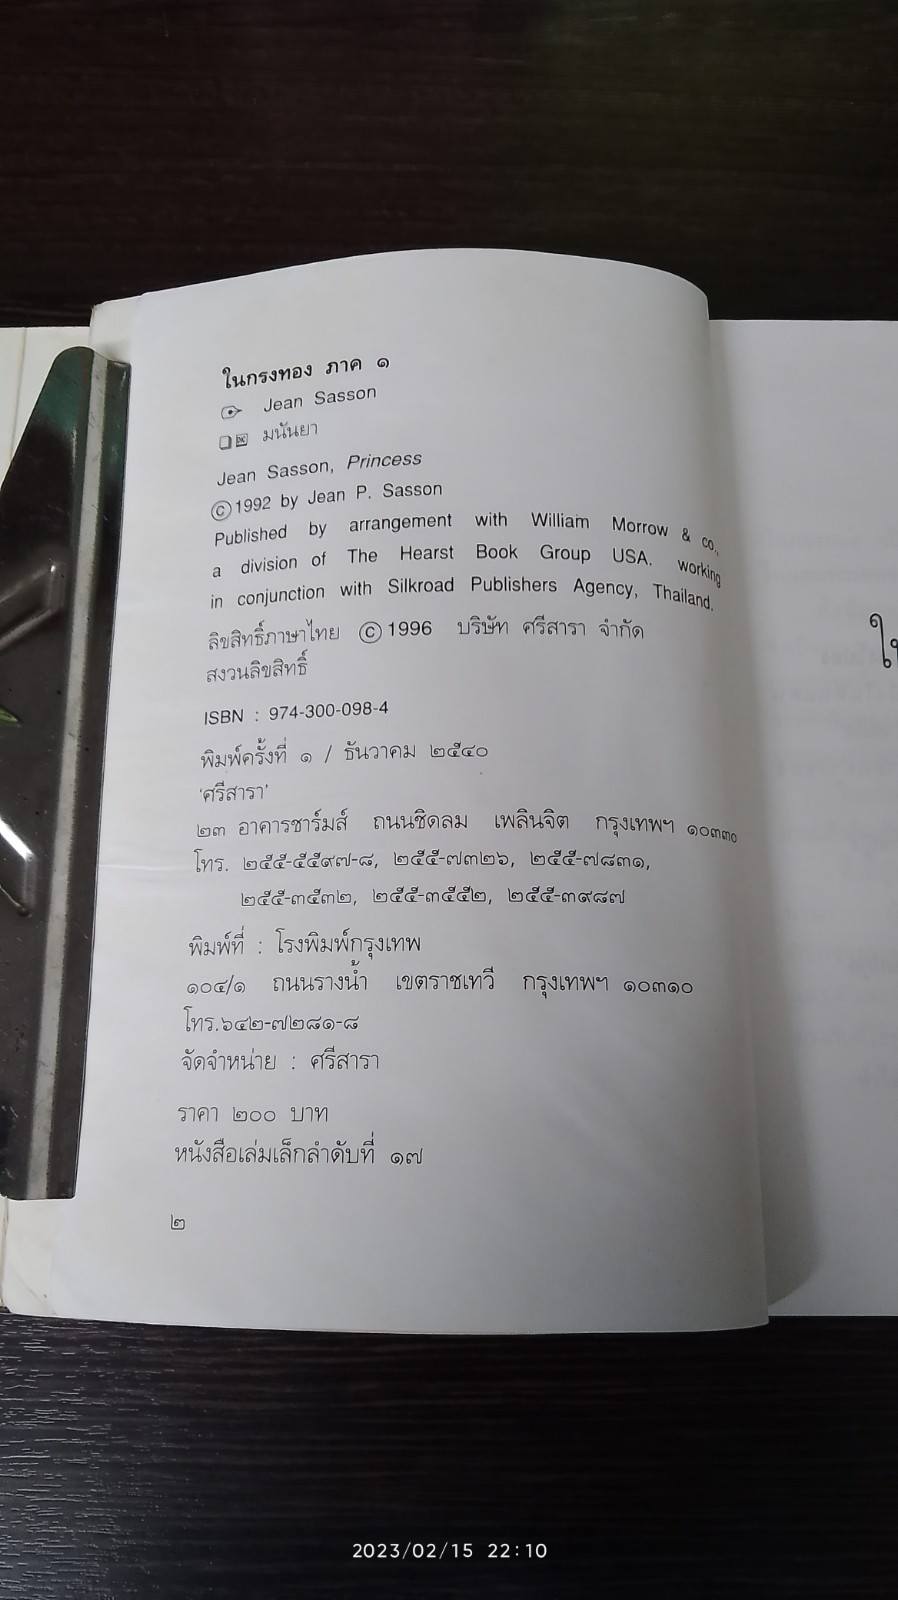 ในกรงทอง ภาค ๑
Jean Sasson
มนันยา
Jean Sasson, Princess
©1992 by Jean P. Sasson
Published by arrangement with William Morrow & co.,
a division of The Hearst Book Group USA. working
in conjunction with Silkroad Publishers Agency, Thailand.
ลิขสิทธิ์ภาษาไทย © 1996 บริษัท ศรีสารา จำกัด
สงวนลิขสิทธิ์
ISBN : 974-300-098-4
พิมพ์ครั้งที่ ๑ / ธันวาคม ๒๕๔๐
'ศรีสารา'
๒๓ อาคารชาร์มส์ ถนนชิดลม เพลินจิต กรุงเทพฯ ๑๐๓๓๐
โทร. ๒๕๕-๕๕๙๗-๘, ๒๕๕-๗๓๒๖, ๒๕๕-๗๘๓๑,
๒๕๕-๓๕๓๒, ๒๕๕-๓๕๕๒, ๒๕๕-๓๙๘๗
พิมพ์ที่ : โรงพิมพ์กรุงเทพ
๑๐๔/๑ ถนนรางน้ำ เขตราชเทวี กรุงเทพฯ ๑๐๓๑๐
โทร.๖๔๒-๗๒๘๑-๘
จัดจำหน่าย : ศรีสารา
ราคา ๒๐๐ บาท
หนังสือเล่มเล็กลำดับที่ ๑๗
๒
2023/02/15 22:10